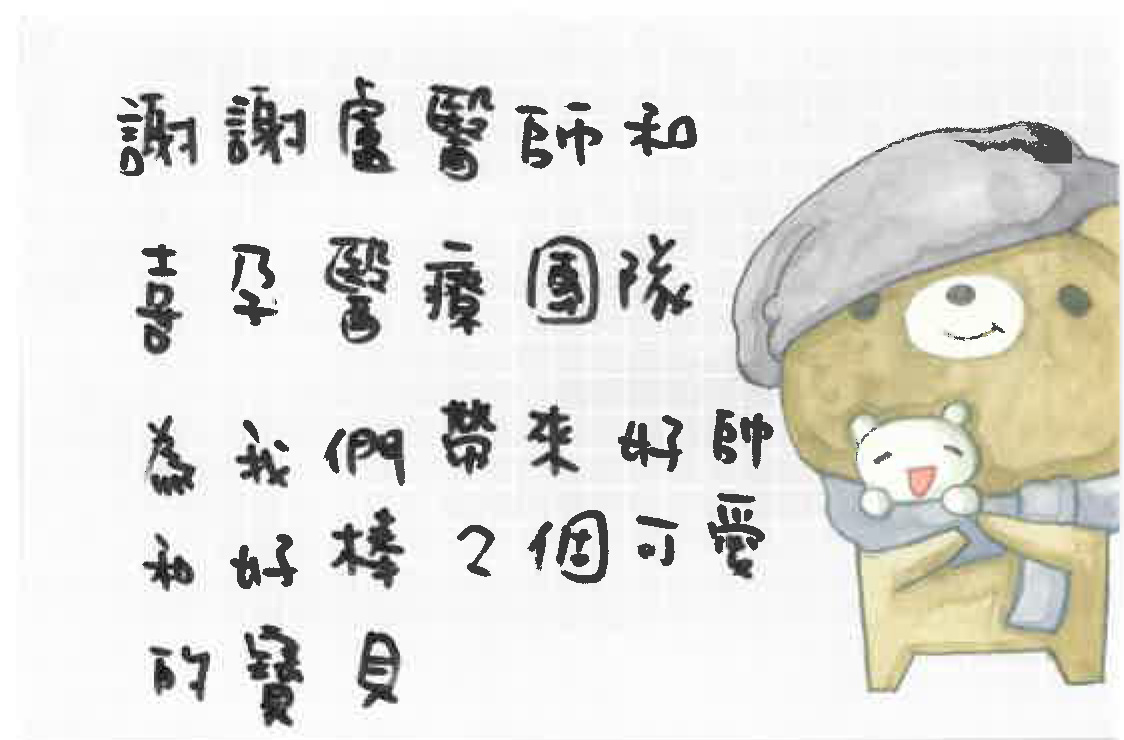 謝謝盧醫師和
喜孕醫療團隊
為我們帶來好帥
和好棒2個可愛
的寶貝